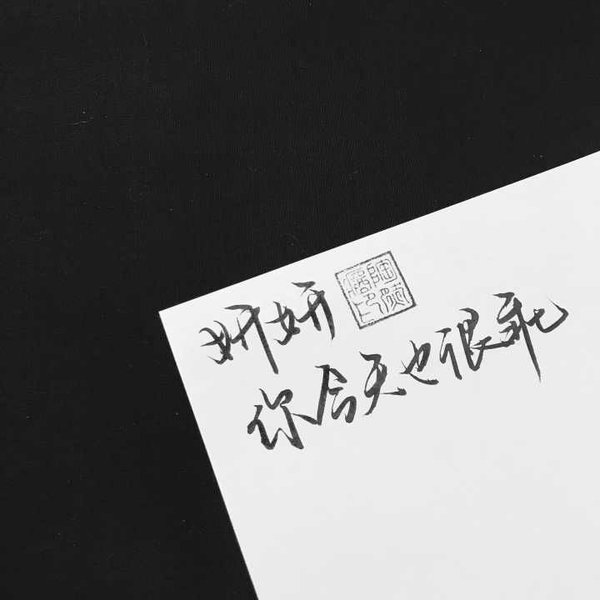 妍妍
你今天也很乖